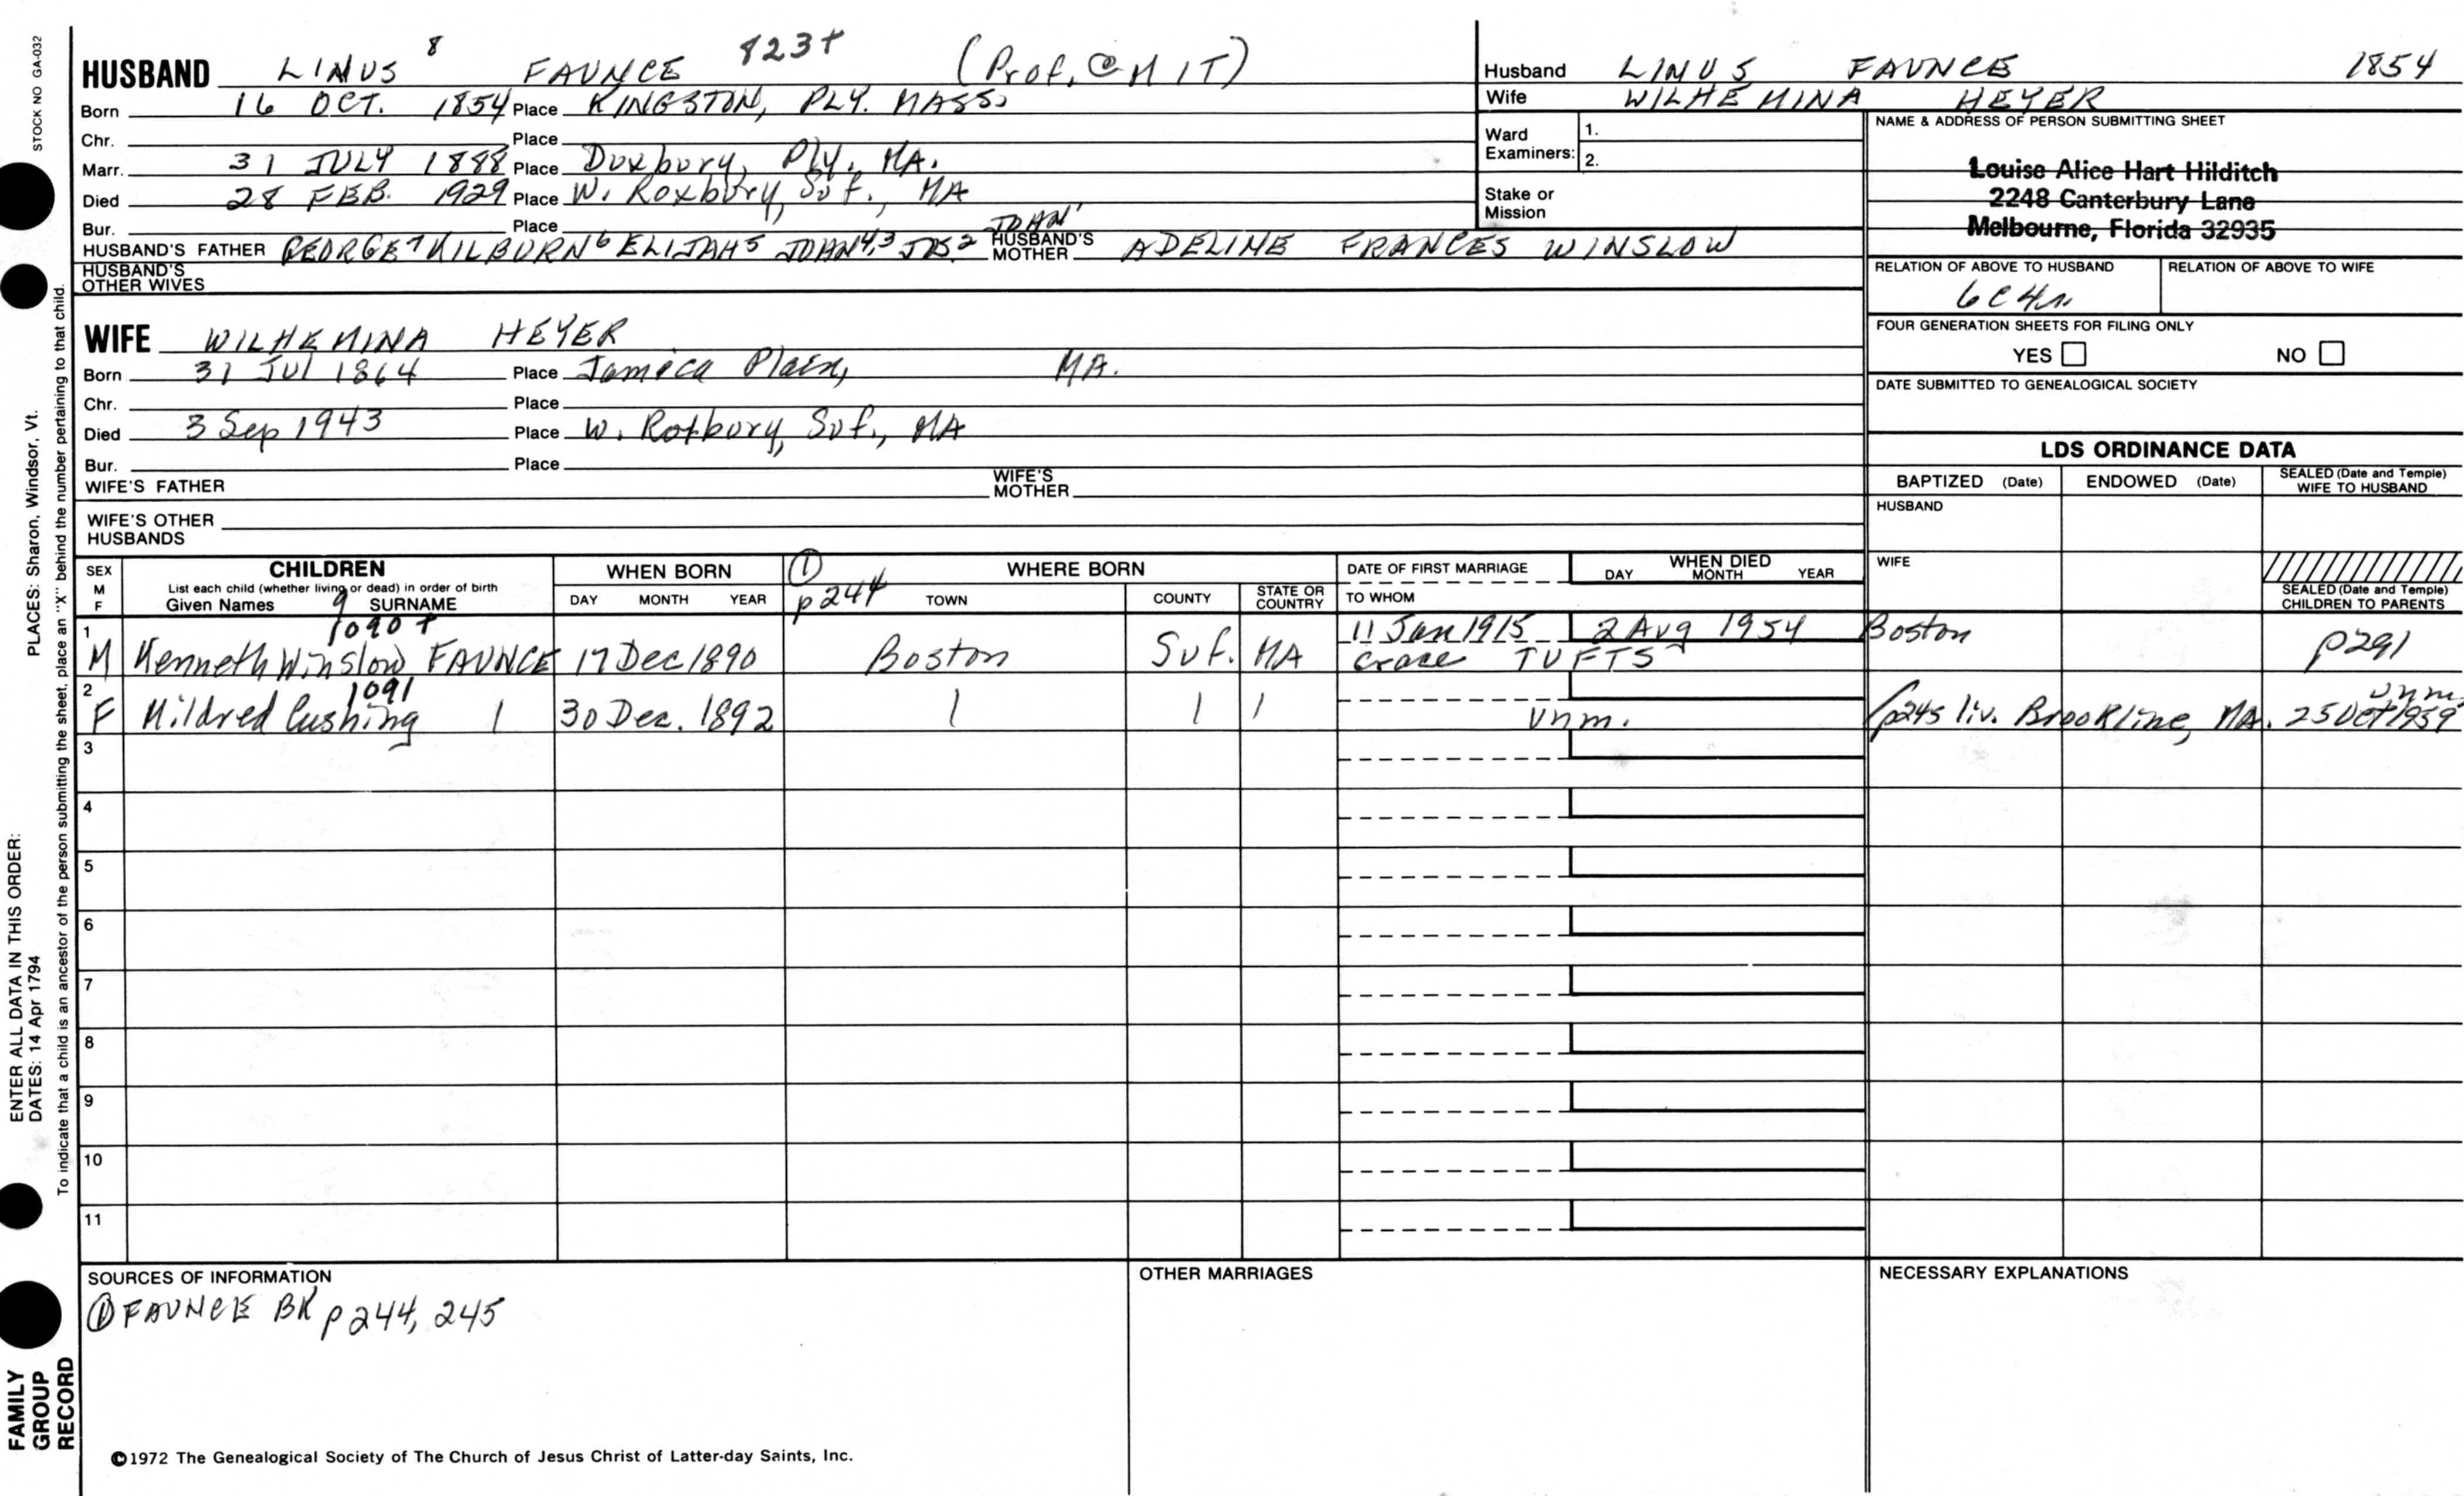 STOCK NO GA-032
HUSBAND LINUS 8 FAUNCE 823+ (Prof. @ MIT)
Born 16 OCT. 1854 Place KINGSTON, PLY. MASS.
Chr. Place
Marr. 31 JULY 1888 Place Duxbury, Ply. MA.
Died 28 FEB. 1929 Place W. Roxbury, Suf., MA
Bur. Place
HUSBAND'S FATHER GEORGE 7 KILBURN 6 ELIJAH 5 JOHN 4,3 JOS 2 JOHN' HUSBAND'S MOTHER ADELINE FRANCES WINSLOW
HUSBAND'S OTHER WIVES
WIFE WILHEMINA HEYER
Born 31 Jul 1864 Place Jamica Plain, MA.
Chr. Place
Died 3 Sep 1943 Place W. Roxbury, Suf., MA
Bur. Place
WIFE'S FATHER WIFE'S MOTHER
WIFE'S OTHER HUSBANDS
Husband LINUS FAUNCE 1854
Wife WILHEMINA HEYER
Ward Examiners: 1. 2.
Stake or Mission
NAME & ADDRESS OF PERSON SUBMITTING SHEET
Louise Alice Hart Hilditch
2248 Canterbury Lane
Melbourne, Florida 32935
RELATION OF ABOVE TO HUSBAND RELATION OF ABOVE TO WIFE
6C4r.
FOUR GENERATION SHEETS FOR FILING ONLY
YES NO
DATE SUBMITTED TO GENEALOGICAL SOCIETY
LDS ORDINANCE DATA
BAPTIZED (Date) ENDOWED (Date) SEALED (Date and Temple) WIFE TO HUSBAND
HUSBAND
WIFE
SEALED (Date and Temple) CHILDREN TO PARENTS
SEX M F
CHILDREN
List each child (whether living or dead) in order of birth
Given Names 9 SURNAME
WHEN BORN
DAY MONTH YEAR
① p244
WHERE BORN
TOWN COUNTY STATE OR COUNTRY
DATE OF FIRST MARRIAGE
TO WHOM
WHEN DIED
DAY MONTH YEAR
1 1090+
M Kenneth Winslow FAUNCE 17 Dec 1890 Boston Suf. MA 11 Jan 1915 Grace TUFTS 2 Aug 1954 Boston p291
2 1091
F Mildred Cushing 30 Dec. 1892 unm. p245 liv. Brookline, MA. 25 Oct 1959 unm.
3
4
5
6
7
8
9
10
11
SOURCES OF INFORMATION
① FAUNCE BK p244, 245
OTHER MARRIAGES
NECESSARY EXPLANATIONS
©1972 The Genealogical Society of The Church of Jesus Christ of Latter-day Saints, Inc.
ENTER ALL DATA IN THIS ORDER:
DATES: 14 Apr 1794
PLACES: Sharon, Windsor, Vt.
To indicate that a child is an ancestor of the person submitting the sheet, place an "X" behind the number pertaining to that child.
FAMILY
GROUP
RECORD